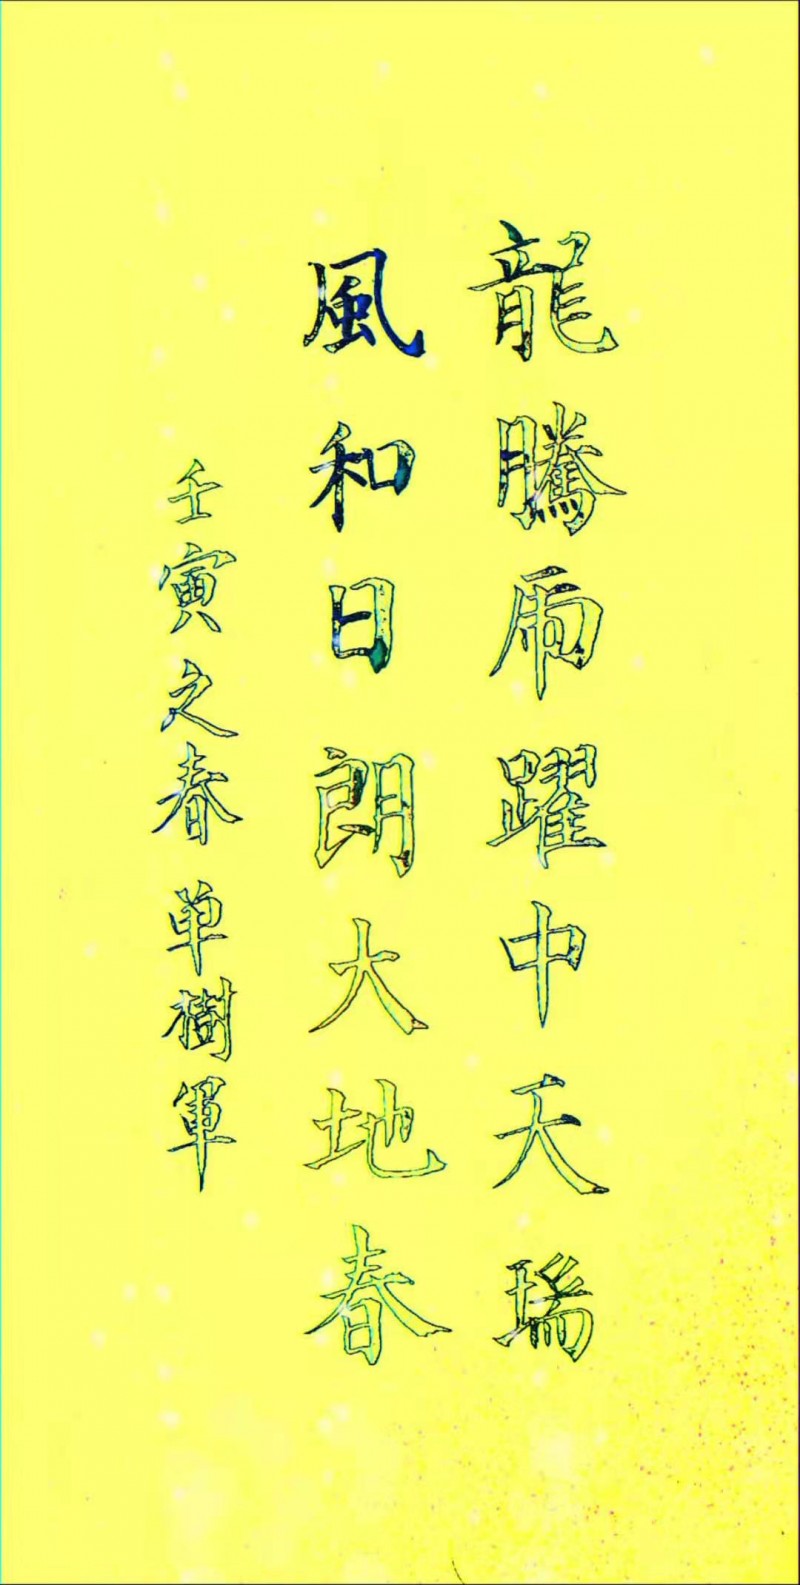 龍騰乕躍中天瑞
風和日朗大地春
壬寅之春 单樹軍